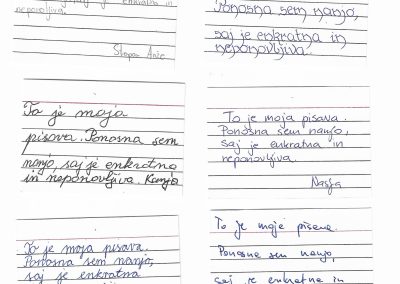 enkratna in
neponovljiva.
Stepan Anže
Ponosna sem nanjo,
saj je enkratna in
neponovljiva.
To je moja
pisava. Ponosna sem
nanjo, saj je enkratna
in neponovljiva. Kanja
To je moja pisava.
Ponosna sem nanjo,
saj je enkratna in
neponovljiva.
Nastja
To je moja pisava.
Ponosna sem nanjo,
saj je enkratna
To je moje pisava.
Ponosna sem nanjo,
saj je enkratna in